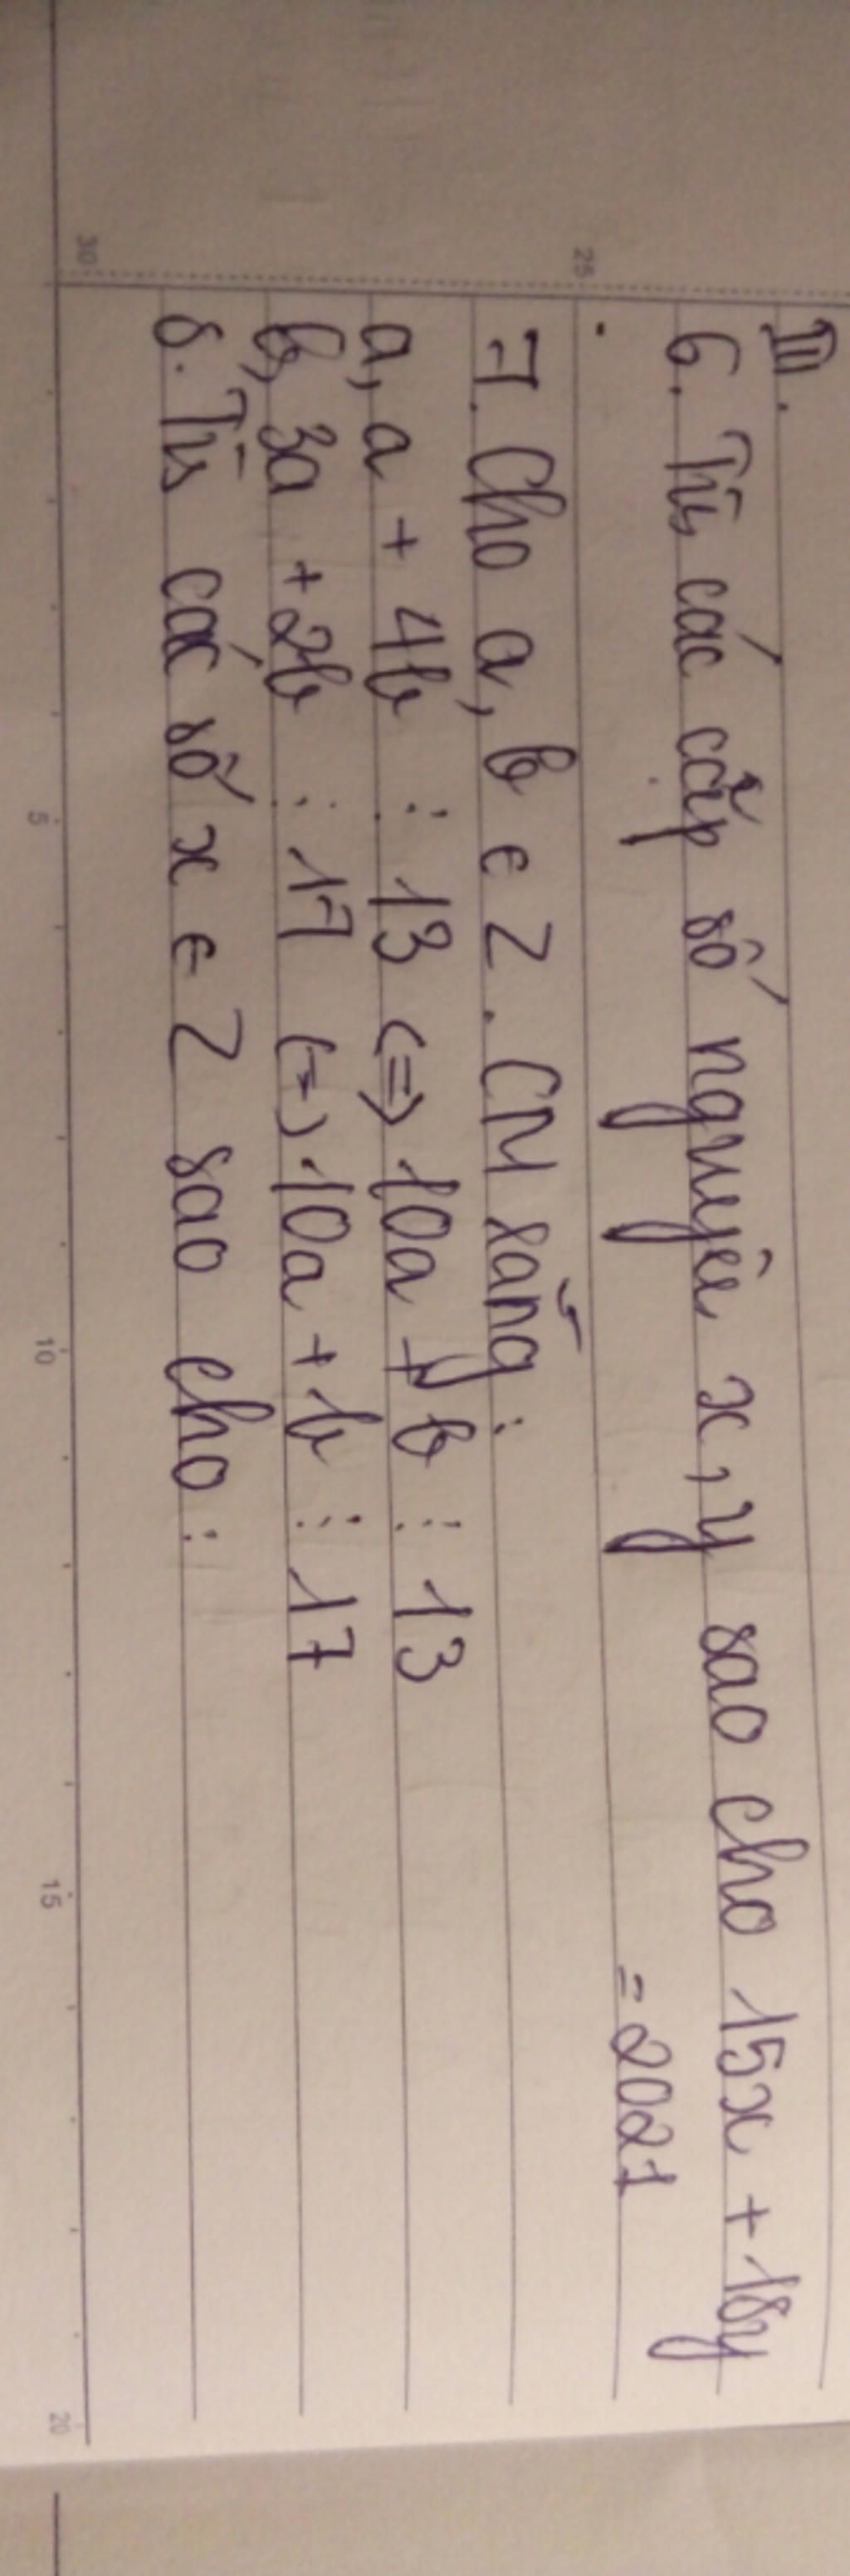 III.
6. Tìm các cặp số nguyên x, y sao cho 15x + 18y
= 2021
7. Cho a, b ∈ Z. CM rằng :
a, a + 4b ⋮ 13 (=) 10a + b ⋮ 13
b, 3a + 2b ⋮ 17 (=) 10a + b ⋮ 17
8. Tìm các số x ∈ Z sao cho :
30
25
5
10
15
20